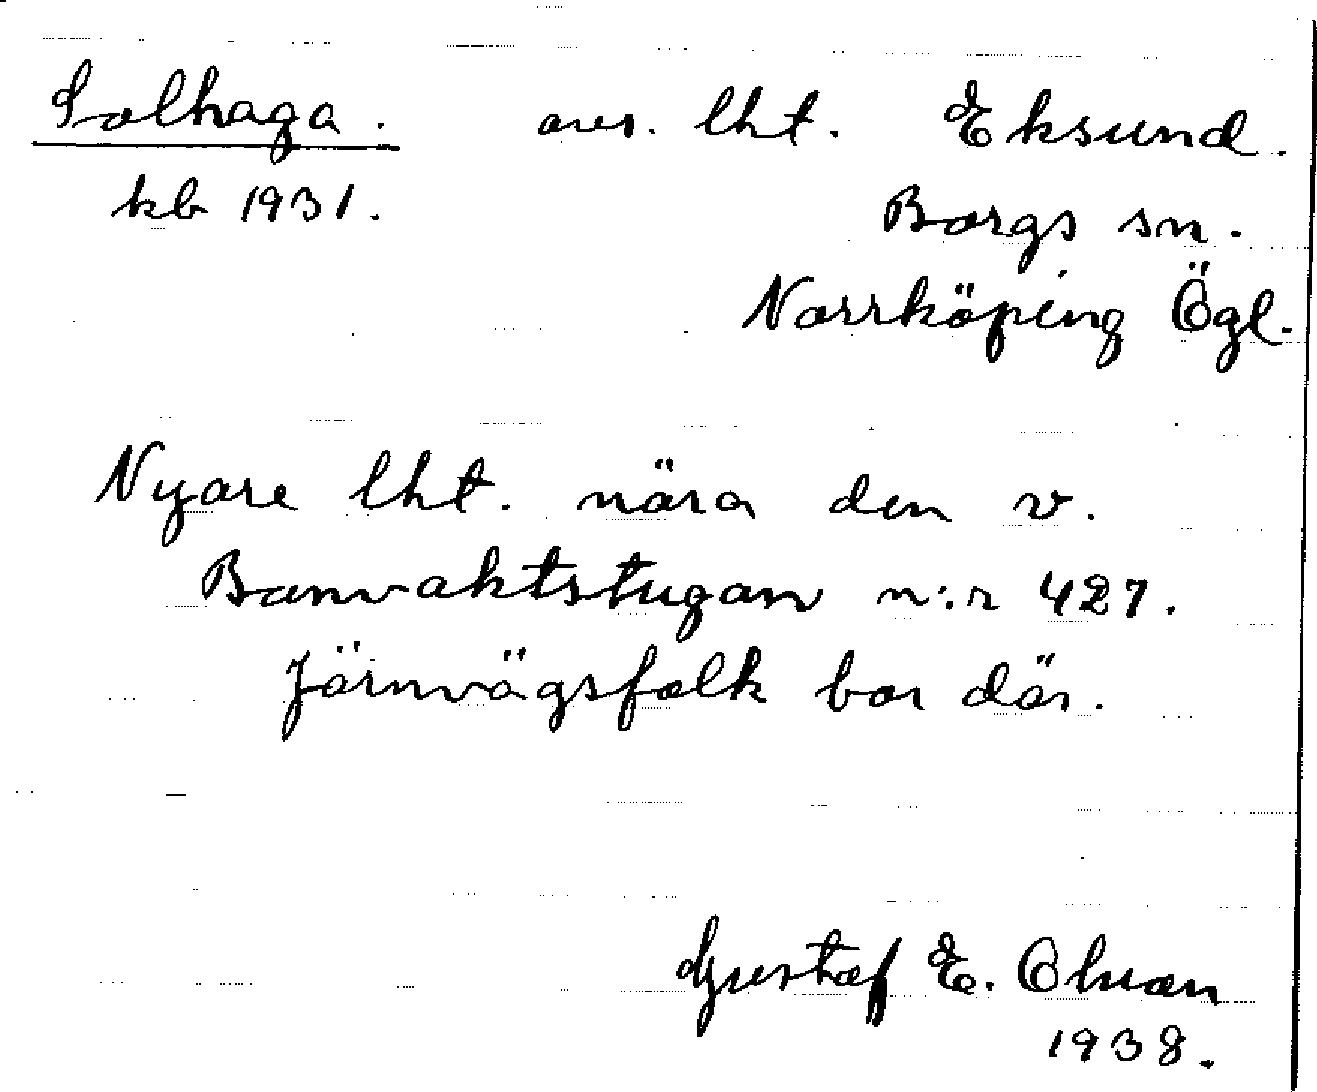 Solhaga. avs. lht. Eksund.
kb 1931. Borgs sn.
Norrköping Ögl.
Nyare lht. nära den v.
Banvaktstugan n:r 427.
Järnvägsfolk bor där.
Gustaf E.
1938.